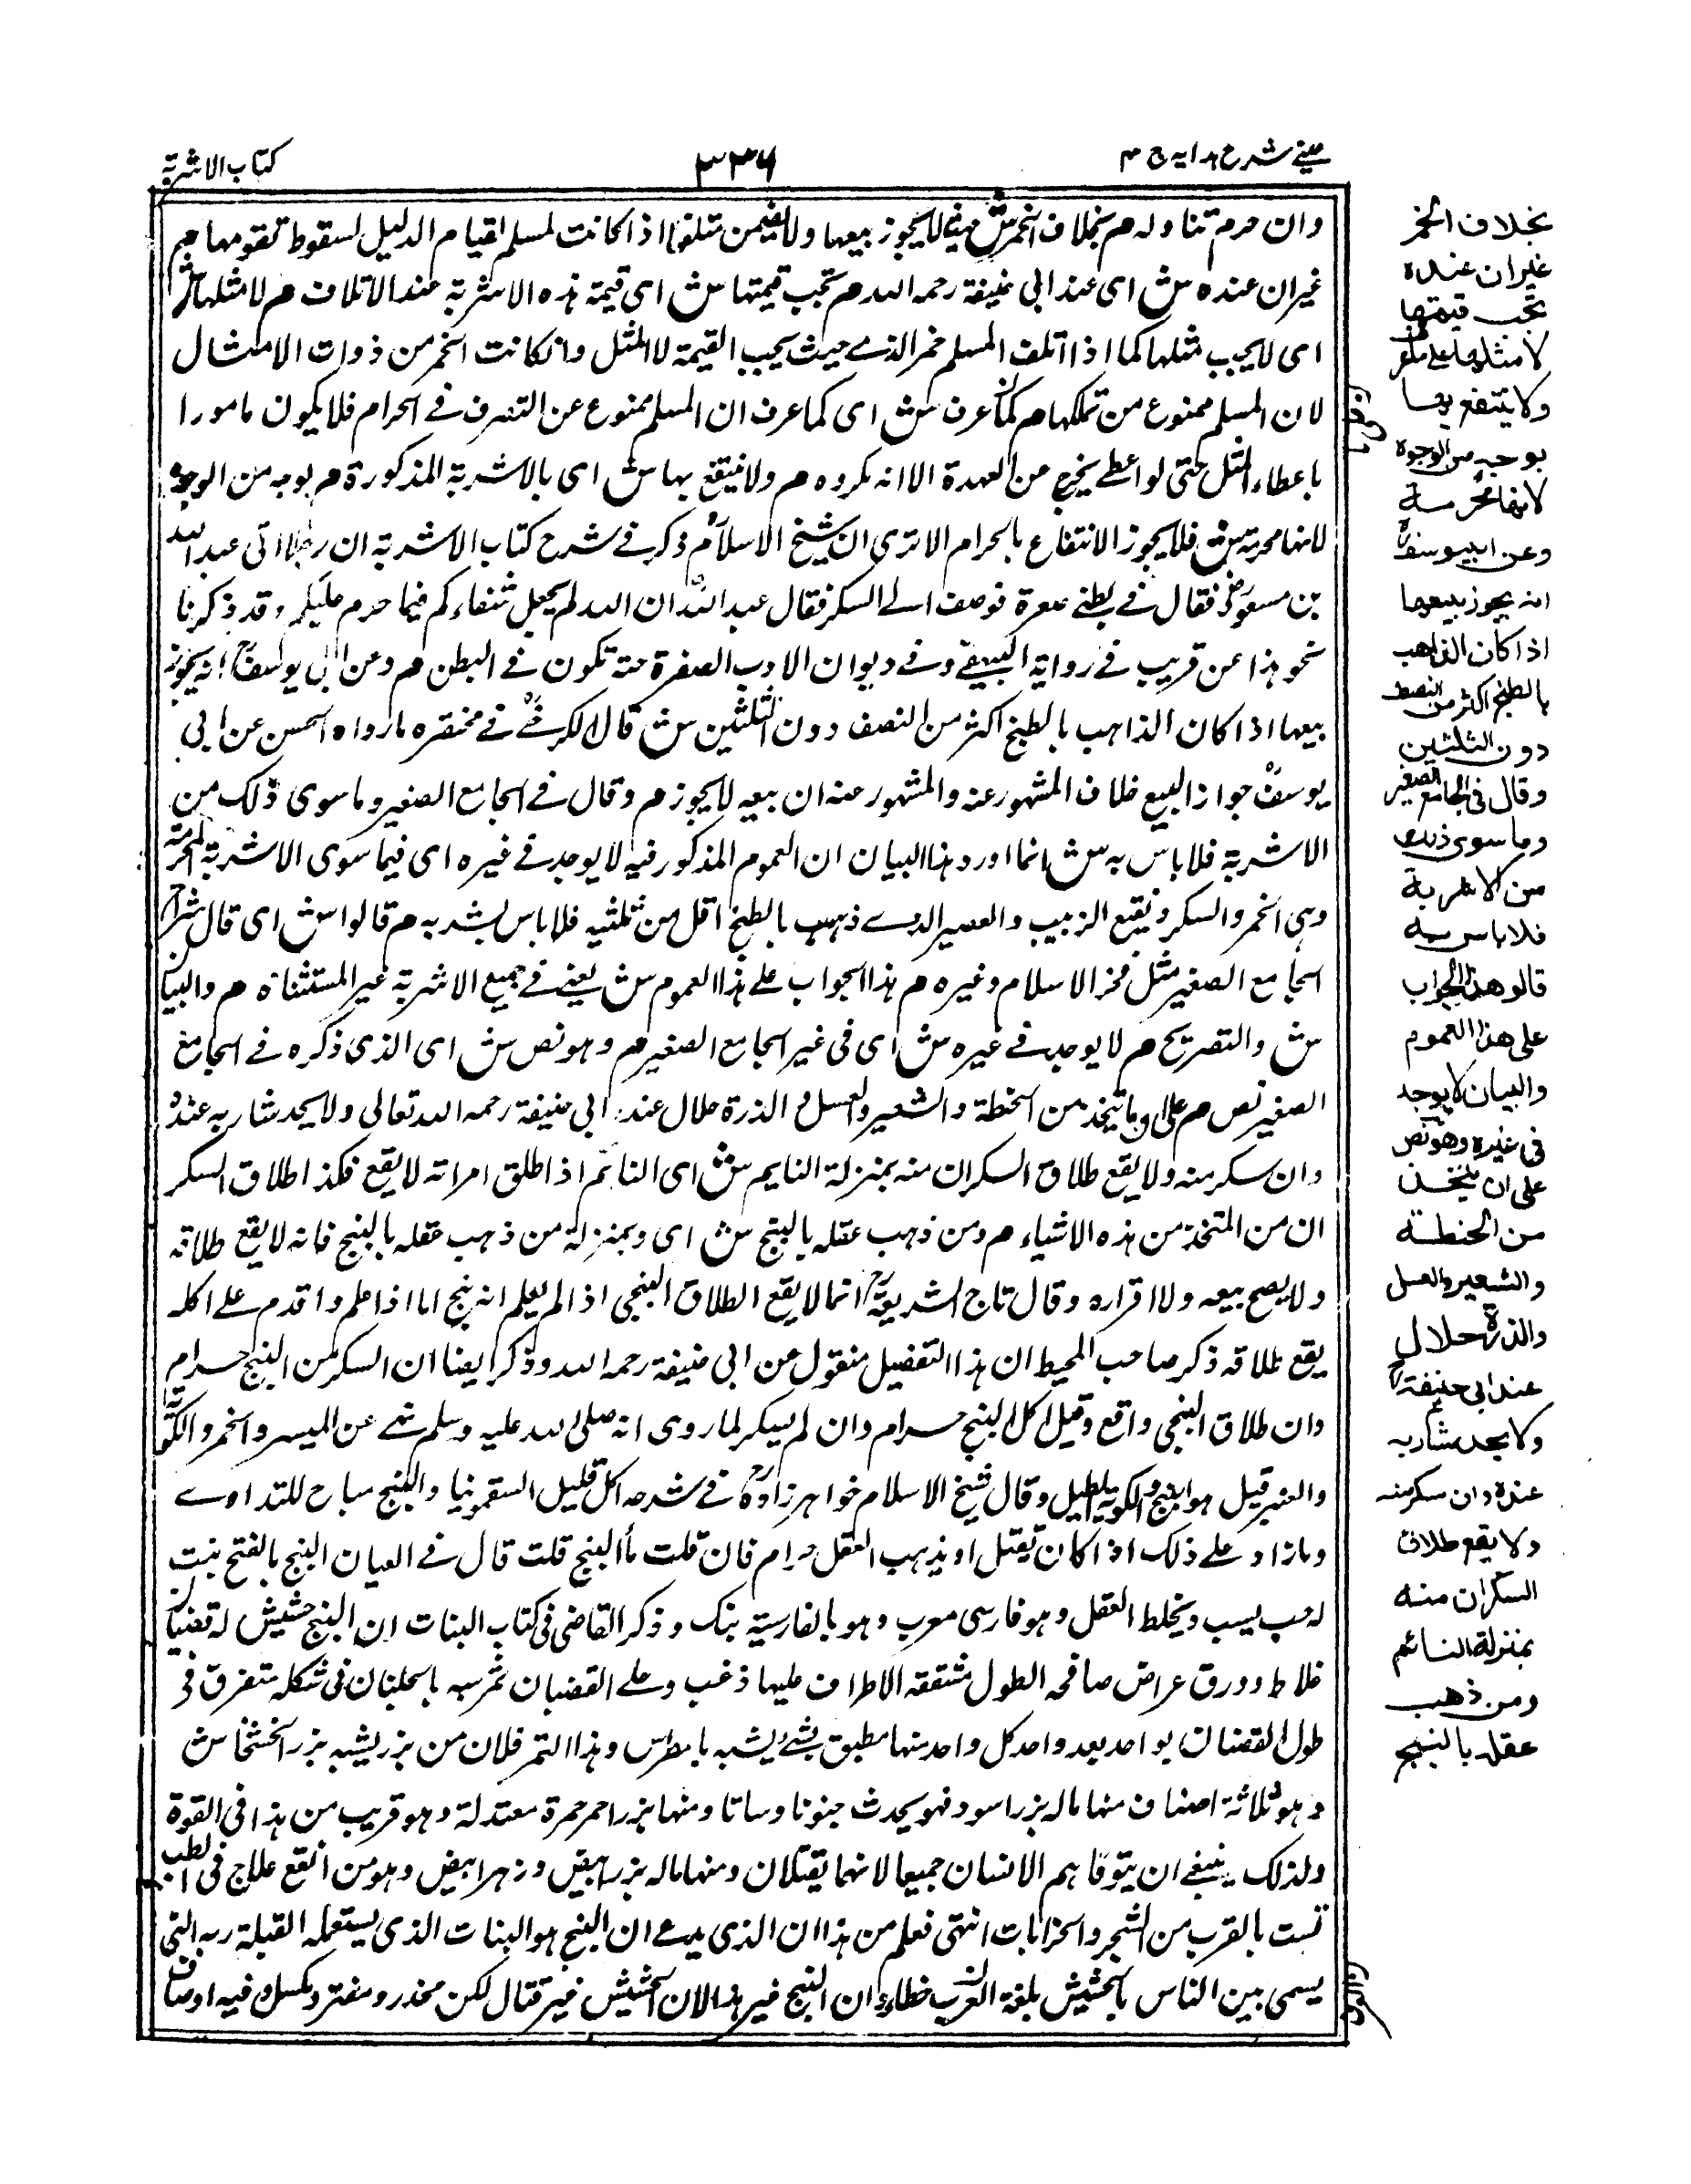 عيني شرح هدايه ج ٤
٣٣٦
كتاب الاشربة
وان حرم تناوله م بخلاف الخمر ش حيث لا يجوز بيعها ولا يضمن متلفها اذا كانت لمسلم لقيام الدليل لسقوط تقومها م
غير ان عنده ش اى عند ابي حنيفة رحمه الله م تجب قيمتها ش اى قيمة هذه الاشربة عند الاتلاف م لا مثلها ش
اى لا يجب مثلها كما اذا اتلف المسلم خمر الذمے حيث يجب القيمة لا المثل وان كانت الخمر من ذوات الامثال
لان المسلم ممنوع من تملكها م كما عرف ش اى كما عرف ان المسلم ممنوع عن التصرف فے الحرام فلا يكون مامورا
باعطاء المثل حتى لو اعطے يخرج من العهدة الا انه مكروه م ولا ينتفع بها ش اى بالاشربة المذكورة م بوجه من الوجوه
لانها محرمة ش فلا يجوز الانتفاع بالحرام الا ترى ان شيخ الاسلام ذكر فے شرح كتاب الاشربة ان رجلا اتى عبد الله
بن مسعود فقال فے بطنے صفرة فوصف لے السكر فقال عبد الله ان الله لم يجعل شفاءكم فيما حرم عليكم وقد ذكرنا
نحو هذا عن قريب فے رواية البيهقے وفے ديوان الادب الصفرة حية تكون فے البطن م وعن ابى يوسف انه يجوز
بيعها اذا كان الذاهب بالطبخ اكثر من النصف دون الثلثين ش قال الكرخے فے مختصره ما رواه الحسن عن ابي
يوسف جواز البيع خلاف المشهور عنه والمشهور عنه ان بيعه لا يجوز م وقال فے الجامع الصغير وما سوى ذلك من
الاشربة فلا باس به ش انما اورد هذا البيان ان العموم المذكور فيه لا يوجد فے غيره اى فيما سوى الاشربة المحرمة
وهى الخمر والسكر ونقيع الزبيب والعصير الذے ذهب بالطبخ اقل من ثلثيه فلا باس بشربه م قالوا ش اى قال شراح
الجامع الصغير مثل فخر الاسلام وغيره م هذا الجواب علے هذا العموم ش يعنے فے جميع الاشربة غير المستثناة م والبيان
ش والتصريح م لا يوجد فے غيره ش اى فى غير الجامع الصغير م وهو نص ش اى الذى ذكره فے الجامع
الصغير نص م على ان ما يتخذ من الحنطة والشعير والعسل و الذرة حلال عند ابى حنيفة رحمه الله تعالى ولا يحد شاربه عنده
وان سكر منه ولا يقع طلاق السكران منه بمنزلة النايم ش اى النائم اذا طلق امراته لا يقع فكذا طلاق السكر
ان من المتخذ من هذه الاشياء م ومن ذهب عقله بالبنج ش اى وبمنزلة من ذهب عقله بالبنج فانه لا يقع طلاقه
ولا يصح بيعه ولا اقراره وقال تاج الشريعة انما لا يقع الطلاق البنجى اذا لم يعلم انه بنج اما اذا علم واقدم علے اكله
يقع طلاقه ذكر صاحب المحيط ان هذا التفصيل منقول عن ابى حنيفة رحمه الله وذكر ايضا ان السكر من البنج حرام
وان طلاق البنجى واقع وقيل اكل البنج حرام وان لم يسكر لما روى انه صلى الله عليه وسلم نهے عن الميسر والخمر والكوبة
والغبير قيل هو البنج والكوبة الطبل وقال شيخ الاسلام خواهرزاده فے شرحه اكل قليل السقمونيا والبنج مباح للتداوے
وما زاد علے ذلك اذا كان يقتل او يذهب العقل حرام فان قلت ما البنج قلت قال فے العيان البنج بالفتح نبت
له حب يسبت ويخلط العقل وهو فارسى معرب وهو بالفارسية بنك وذكر القاضى فى كتاب البنات ان البنج حشيش له قضبان
غلاظ وورق عراض صافحه الطول مشققه الاطراف عليها زغب وعلے القضبان ثمر شبه بالجلنار فى شكله متفرق فى
طول القضبان يواحد بعد واحد كل واحد منها مطبق بشئ يشبه با مطرس وهذا التمر فلان من بزر يشبه بزر الخشخاش
وهو ثلاثة اصناف منها ما له بزر اسود فهو يحدث جنونا وساتا ومنها بزر احمر حمرة معتدلة وهو قريب من هذا فى القوة
ولذلك ينبغے ان يتوقاهم الانسان جميعا لانهما يقتلان ومنها ما له بزر ابيض وزهر ابيض وهو من انفع علاج فى الطب
تنبت بالقرب من الشجر والخرابات انتهى فعلم من هذا ان الذى يدعے ان البنج هو البنات الذى يستعمله القبلة ربه التى
يسمى بين الناس بالحشيش بلغة العرب خطاء وان البنج غير هذا لان الحشيش غير قتال لكن مخدر ومفتر ومكسل وفيه اوصاف
بخلاف الخمر
غير ان عنده
تجب قيمتها
لا مثلها على ما عرف
ولا ينتفع بها
بوجه من الوجوه
لانها محرمة
وعن ابى يوسف
انه يجوز بيعها
اذا كان الذاهب
بالطبخ اكثر من النصف
دون الثلثين
وقال فى الجامع الصغير
وما سوى ذلك
من الاشربة
فلا باس به
قالو هذا الجواب
على هذا العموم
والبيان لا يوجد
فى غيره وهو نص
على ان ما يتخذ
من الحنطة
والشعير والعسل
والذرة حلال
عند ابى حنيفة
ولا يحد شاربه
عنده وان سكر منه
ولا يقع طلاق
السكران منه
بمنزلة النائم
ومن ذهب
عقله بالبنج